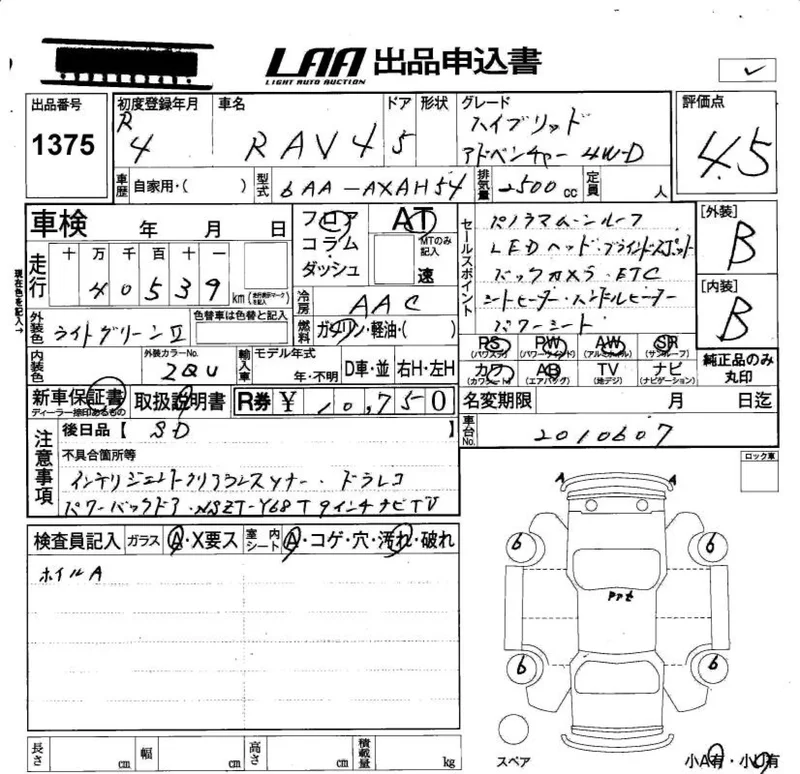 LAA 出品申込書
LIGHT AUTO AUCTION
出品番号
1375
初度登録年月
R
4
車名
RAV4
ドア
5
形状
グレード
ハイブリッド
アドベンチャー 4WD
評価点
4.5
車歴 自家用・( )
型式 6AA-AXAH54
排気量 2500cc
定員 人
車検 年 月 日
走行 十 万 千 百 十 一
40539 km (走行表示マークを記入)
現在色を記入→
フロア
コラム
ダッシュ
AT
MTのみ記入
速
冷房 AAC
燃料 ガソリン・軽油・( )
セールスポイント
パノラマムーンルーフ
LEDヘッド・ブラインドスポット
バックカメラ・ETC
シートヒーター・ハンドルヒーター
パワーシート
[外装]
B
[内装]
B
外装色 ライトグリーンII
色替車は色替と記入
内装色
外装カラーNo.
2QU
輸入車 モデル年式
年・不明
D車・並
右H・左H
PS (パワステ) PW (パワーウインド) AW (アルミホイル) SR (サンルーフ)
カワ (カワシート) AB (エアバッグ) TV (地デジ) ナビ (ナビゲーション)
純正品のみ
丸印
新車保証書
ディーラー捺印あるもの
取扱説明書
R券 ¥ 10,750
名変期限 月 日迄
注意事項
後日品【 SD 】
車台No. 2010607
不具合箇所等
インテリジェントクリアランスソナー・ドラレコ
パワーバックドア・NSZT-Y68T 9インチナビTV
ロック車
検査員記入 ガラス A・X要ス 室内シート A・コゲ・穴・汚れ・破れ
ホイルA
A A
6 6
PPt
6 6
スペア
小A有・小U有
長さ cm 幅 cm 高さ cm 積載量 kg